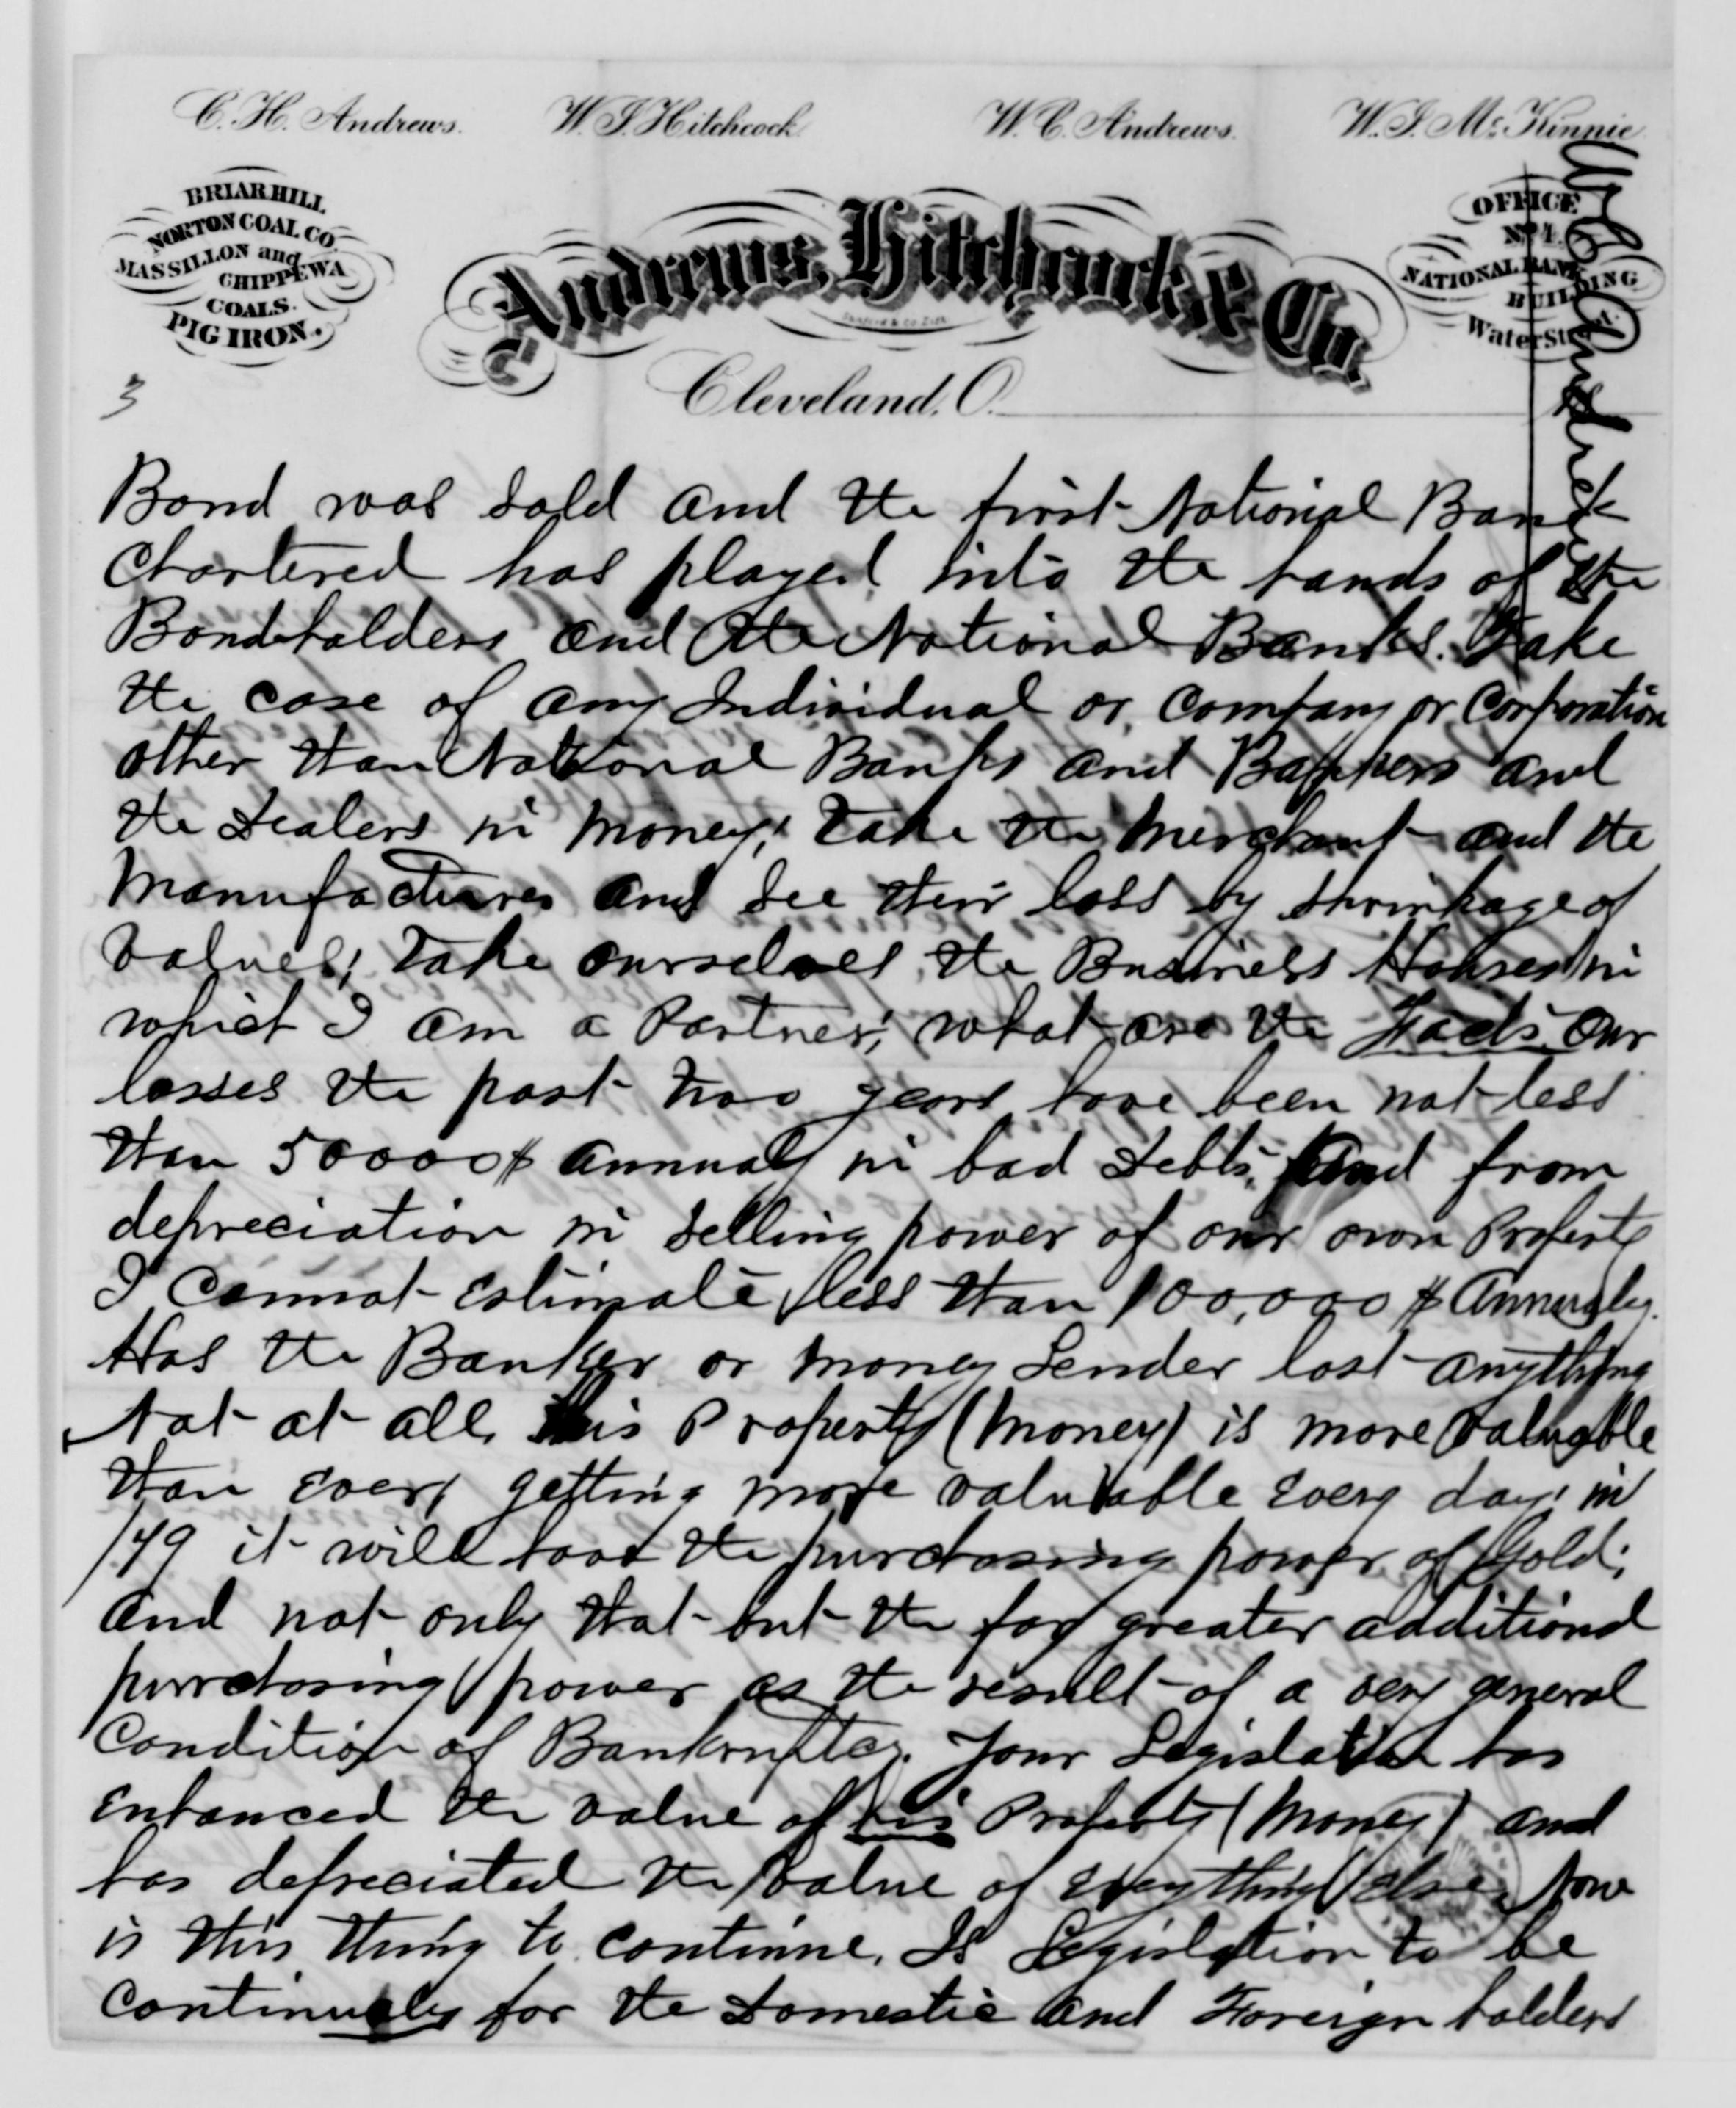 C. H. Andrews.
W. J. Hitchcock
W. C. Andrews.
W. J. Mc. Kinnie
BRIAR HILL
NORTON COAL CO.
MASSILLON and
CHIPPEWA
COALS.
PIG IRON.
Andrews, Hitchcock & Co.
OFFICE
No. 1.
NATIONAL BANK
BUILDING
Water Street.
Cleveland, O.
3
W C Andrews
Bond was sold and the first National Bank
Chartered has played into the hands of the
Bondholders and the National Banks. Take
the case of any Individual or Company or Corporation
other than National Banks and Bankers and
the Dealers in Money; take the Merchant and the
Manufacturers and see their loss by shrinkage of
Values; Take ourselves, the Business Houses in
which I am a Partner; what are the Facts. Our
losses the past two years have been not less
than 50000$ annualy in bad Debts; and from
depreciation in selling power of our own Property
I Cannot Estimate less than 100,000 $ Annualy.
Has the Banker or Money Lender lost anything
Not at all, His Property (Money) is more valuable
than Ever, getting more valuable every day; in
/79 it will have the purchasing power of Gold;
And not only that but the far greater additional
purchasing power as the result of a very general
Condition of Bankruptcy. Your Legislation has
Enhanced the value of his Property (Money) and
has depreciated the value of everything else. Now
is this thing to continue. Is Legislation to be
Continualy for the Domestic and Foreign holders